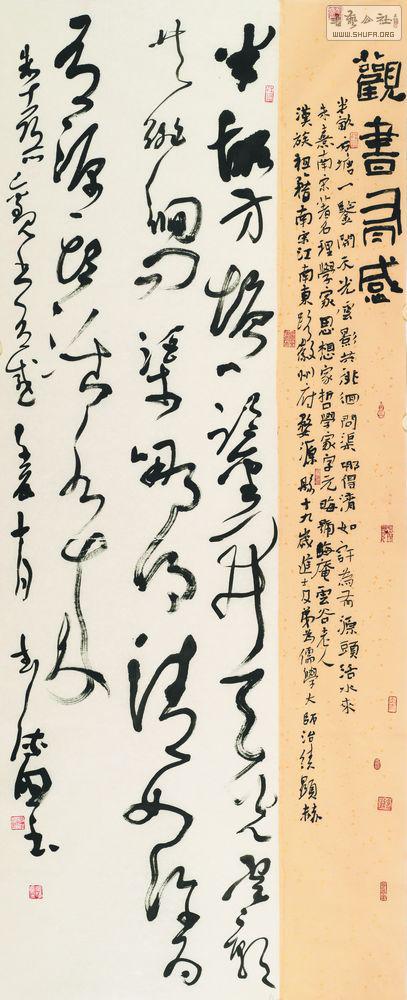 觀書有感
半畝方塘一鑒開天光雲影共徘徊問渠哪得清如許為有源頭活水來
朱熹南宋著名理學家思想家哲學家字元晦號晦庵雲谷老人
漢族祖籍南宋江南東路徽州府婺源縣十九歲進士及第為儒學大師治績顯赫
半畝方塘一鑒開天光雲影
共徘徊問渠哪得清如許為
有源頭活水來
朱子詩一首觀書有感
WWW.SHUFA.ORG